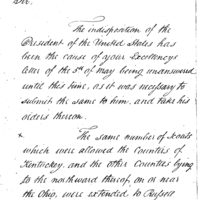 Sir.
The indisposition of the
President of the United States has
been the cause of your Excellencys
letter of the 5th of May being unanswered
until this time, as it was necessary to
submit the same to him, and take his
orders thereon.
x The same number of scouts
which were allowed the Counties of
Kentuckey, and the other Counties lying
to the northward thereof, on or near
the Ohio, were extended to Russell